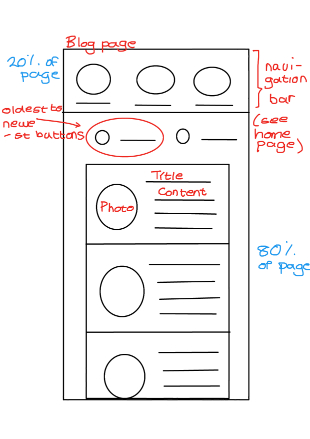 Blog page
20% of
page
navi-
gation
bar
(see
home
page)
oldest to
newe
-st buttons
Title
Content
Photo
80%
of page